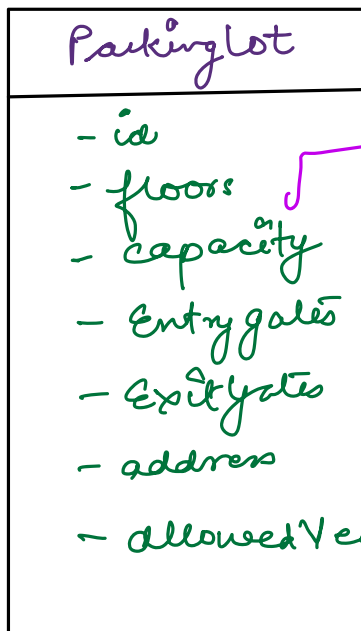 Parkinglot
- id
- floors
- capacity
- Entry gates
- Exit gates
- address
- allowedVe